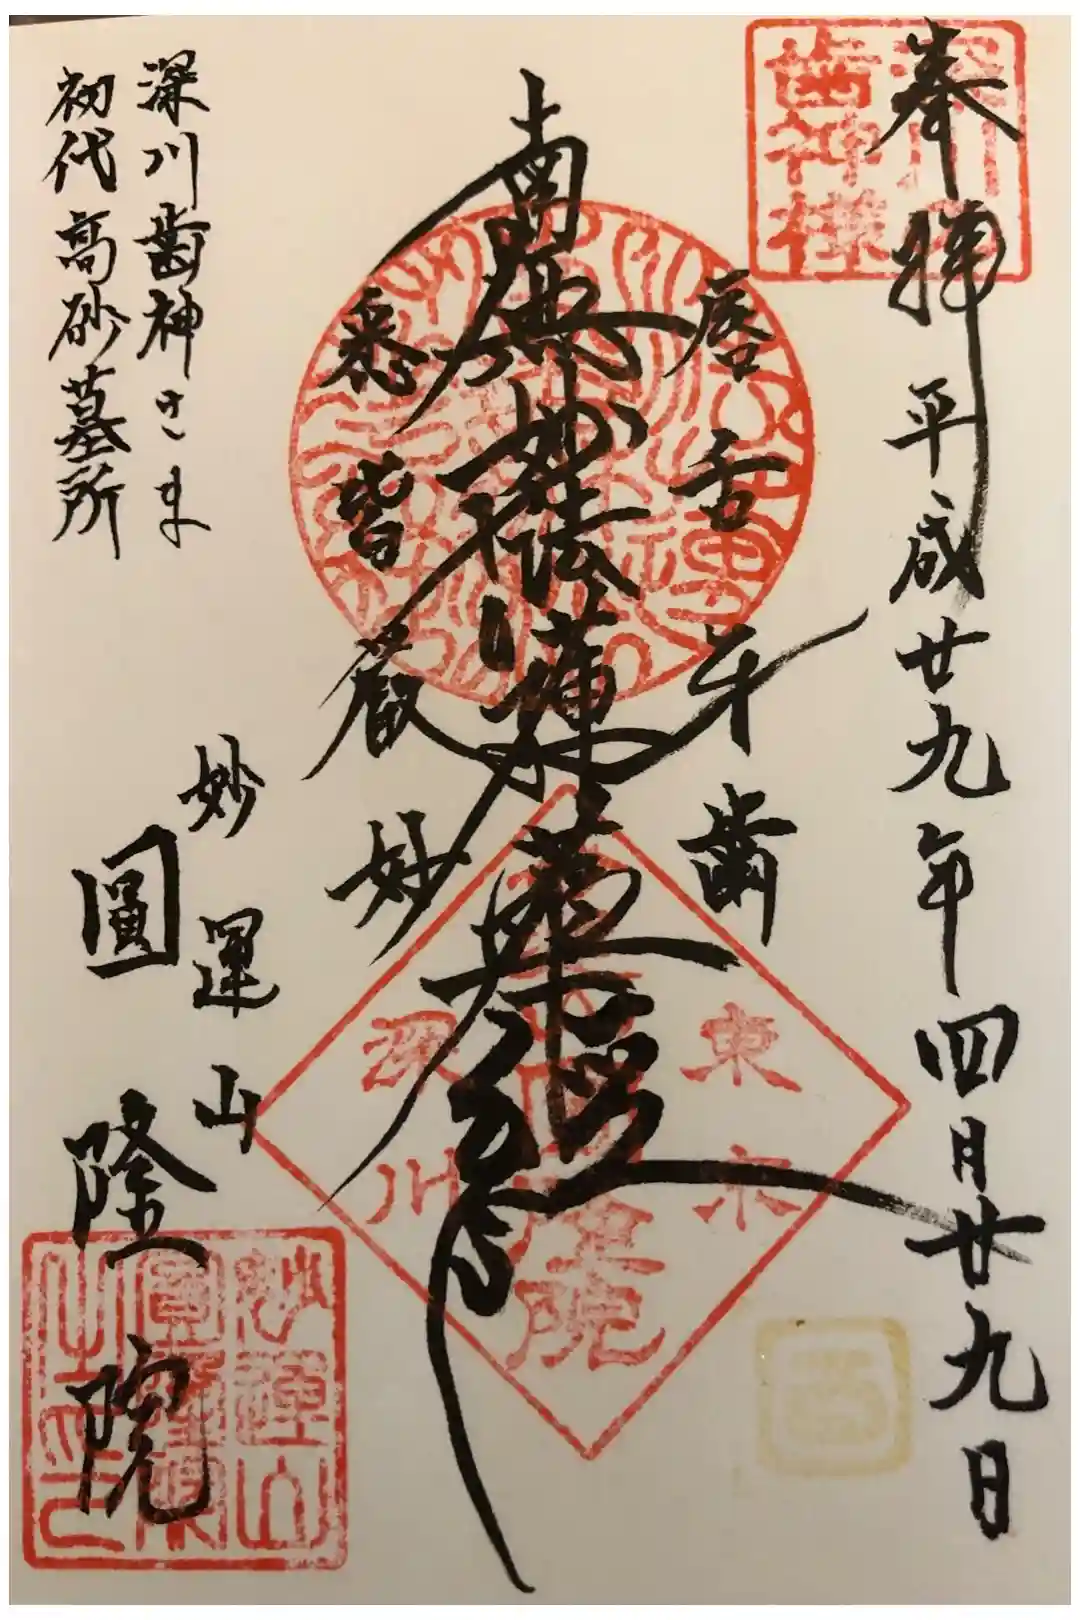 奉拝
平成廿九年四月廿九日
唇舌牙歯
南無妙法蓮華経
悉皆厳妙
深川歯神さま
初代高砂墓所
妙運山
圓隆院
深川
歯神様
東京
深川
圓隆院
妙運山
圓隆院
之印